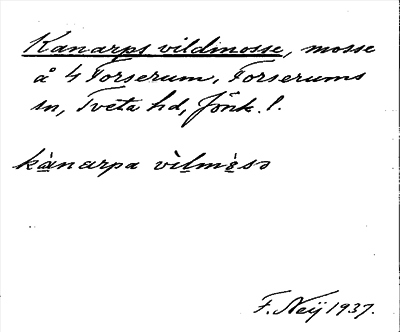 Kanarps vildmosse, mosse
å 4 Forserum, Forserums
sn, Tveta hd, Jönk. l.
kànarpa vìlmèsə
F. Neij 1937.